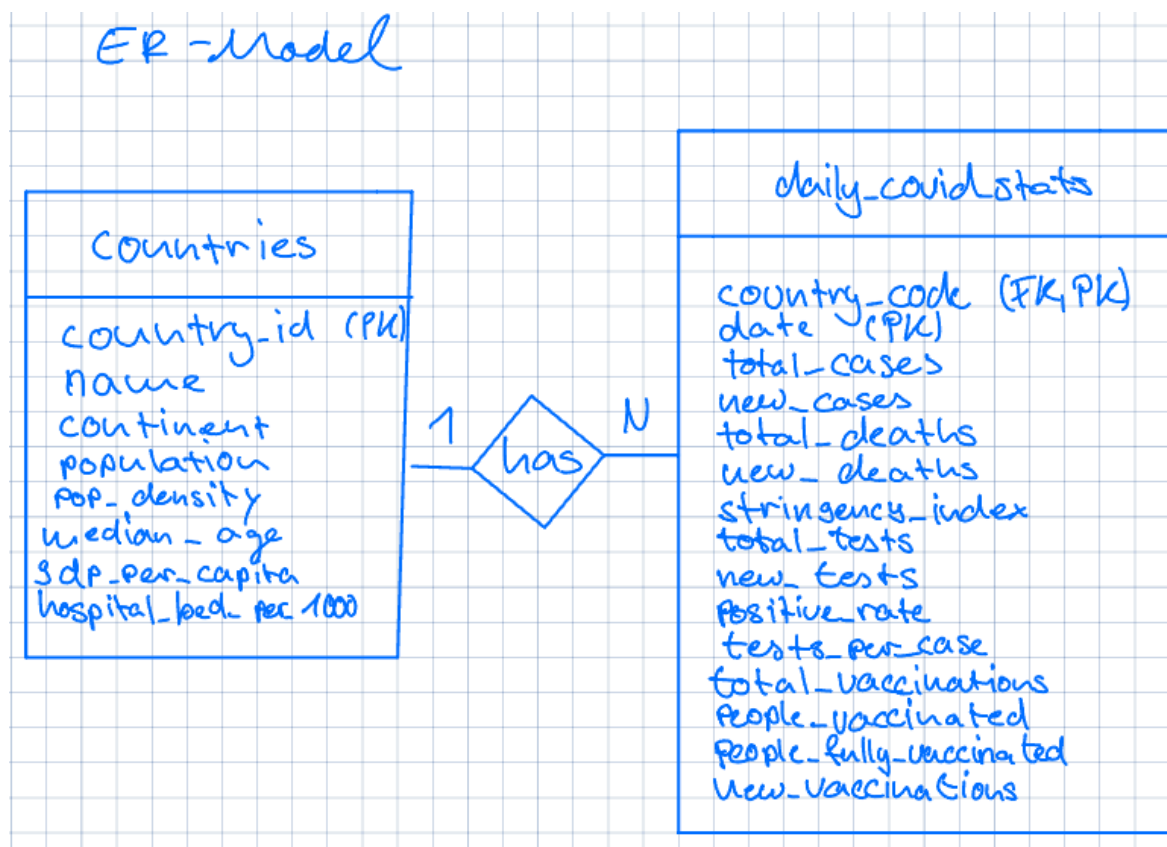 ER-Model
countries
country_id (PK)
name
continent
population
pop_density
median_age
gdp_per_capita
hospital_bed_per_1000
1
has
N
daily_covid_stats
country_code (FK, PK)
date (PK)
total_cases
new_cases
total_deaths
new_deaths
stringency_index
total_tests
new_tests
positive_rate
tests_per_case
total_vaccinations
people_vaccinated
people_fully_vaccinated
new_vaccinations